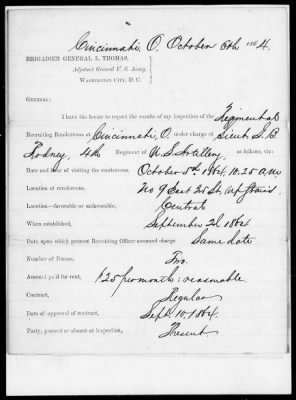 Cincinnati, O. October 6th 1864.
BRIGADIER GENERAL L. THOMAS,
Adjutant General U. S. Army,
WASHINGTON CITY, D. C.
GENERAL:
I have the honor to report the results of my inspection of the Regimental
Recruiting Rendezvous at Cincinnati, O. under charge of Lieut
Rodney, 4th Regiment of U. S. Artillery, as follows, viz:
Date and hour of visiting the rendezvous, October 5th 1864, 10.25 a.m
Location of rendezvous, No 9 East St, Up Stairs.
Location—favorable or unfavorable, Central
When established, September 2d 1864
Date upon which present Recruiting Officer assumed charge Same date
Number of Rooms, Two.
Amount paid for rent, $25 per month: reasonable.
Contract, Regular
Date of approval of contract, Sept. 10, 1864.
Party, present or absent at inspection, Present.